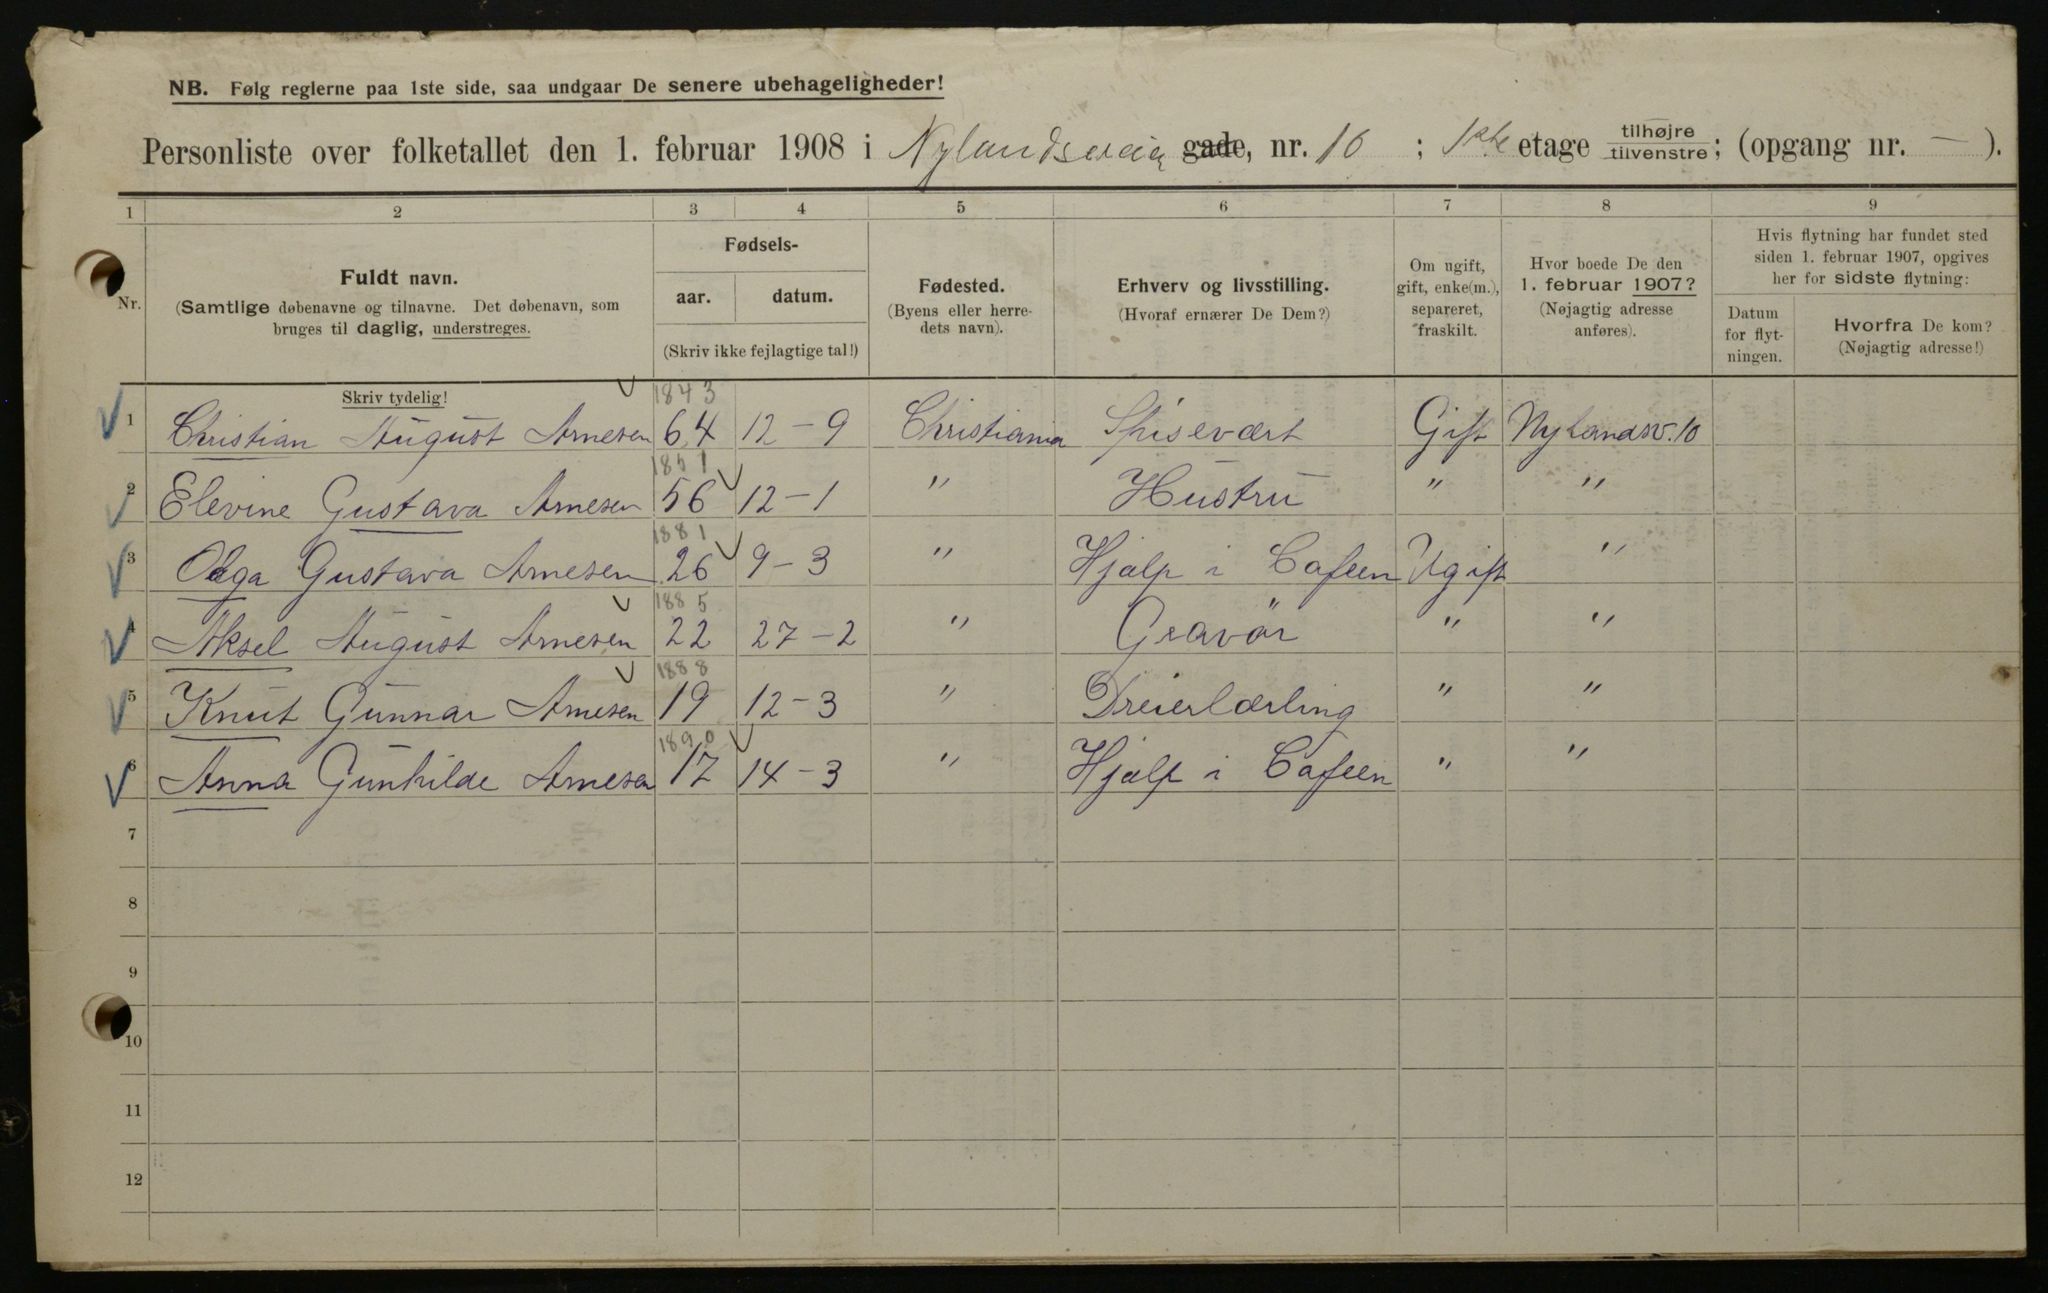 NB. Følg reglerne paa 1ste side, saa undgaar De senere ubehageligheder!
Personliste over folketallet den 1. februar 1908 i Nylandsveien gade, nr. 10 ; 1ste etage tilhøjre tilvenstre; (opgang nr. — ).
1 2 3 4 5 6 7 8 9
Nr.
Fuldt navn.
(Samtlige døbenavne og tilnavne. Det døbenavn, som
bruges til daglig, understreges.
Fødsels-
aar. datum.
(Skriv ikke fejlagtige tal!)
Fødested.
(Byens eller herre-
dets navn).
Erhverv og livsstilling.
(Hvoraf ernærer De Dem?)
Om ugift,
gift, enke(m.),
separeret,
fraskilt.
Hvor boede De den
1. februar 1907?
(Nøjagtig adresse
anføres).
Hvis flytning har fundet sted
siden 1. februar 1907, opgives
her for sidste flytning:
Datum
for flyt-
ningen.
Hvorfra De kom?
(Nøjagtig adresse!)
Skriv tydelig!
1843
1 Christian August Arnesen 64 12-9 Christiania Spisevært Gift Nylandsv. 10
1851
2 Elevine Gustava Arnesen 56 12-1 " Hustru " "
1881
3 Olga Gustava Arnesen 26 9-3 " Hjælp i Cafeen Ugift "
1885
4 Aksel August Arnesen 22 27-2 " Gravör " "
1888
5 Knut Gunnar Arnesen 19 12-3 " Dreierlærling " "
1890
6 Anna Gunhilde Arnesen 17 14-3 " Hjælp i Cafeen " "
7
8
9
10
11
12